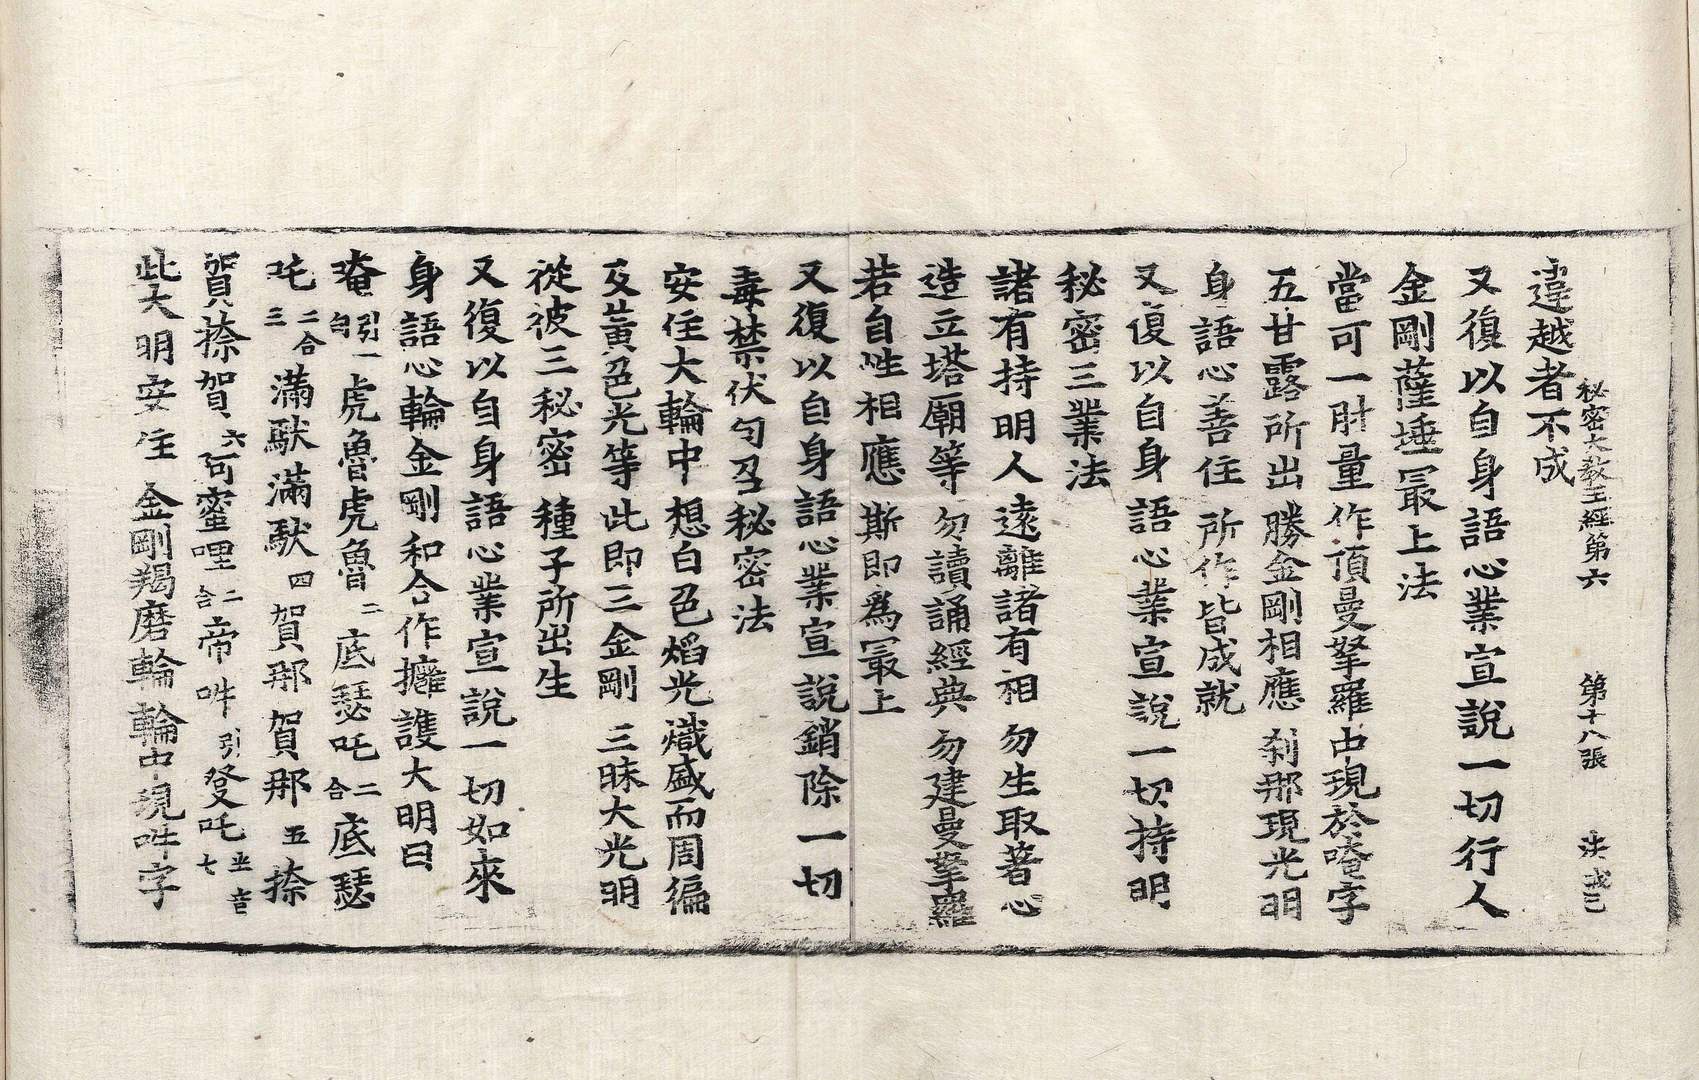 秘密大教王經第六　第十八張
違越者不成
又復以自身語心業宣說一切行人
金剛薩埵㝡上法
當可一肘量作　頂曼拏羅中現於唵字
五甘露所出勝金剛相應　刹那現光明
身語心善住　所作皆成就
又復以自身語心業宣說一切持明
秘密三業法
諸有持明人　遠離諸有相　勿生取著心
造立塔廟等　勿讀誦經典　勿建曼拏羅
若自性相應　斯即爲㝡上
又復以自身語心業宣說銷除一切
毒禁伏勾召秘密法
安住大輪中　想白色熖光　熾盛而周徧
及黃色光等　此即三金剛　三昧大光明
從彼三秘密　種子所出生
又復以自身語心業宣說一切如來
身語心輪金剛和合作擁護大明曰
唵引一句虎魯虎魯二底瑟吒二合底瑟
吒二合三滿馱滿馱四賀那賀那五捺
賀捺賀六阿蜜哩二合帝吽引發吒半音七
此大明安住　金剛羯磨輪　輪中現吽字